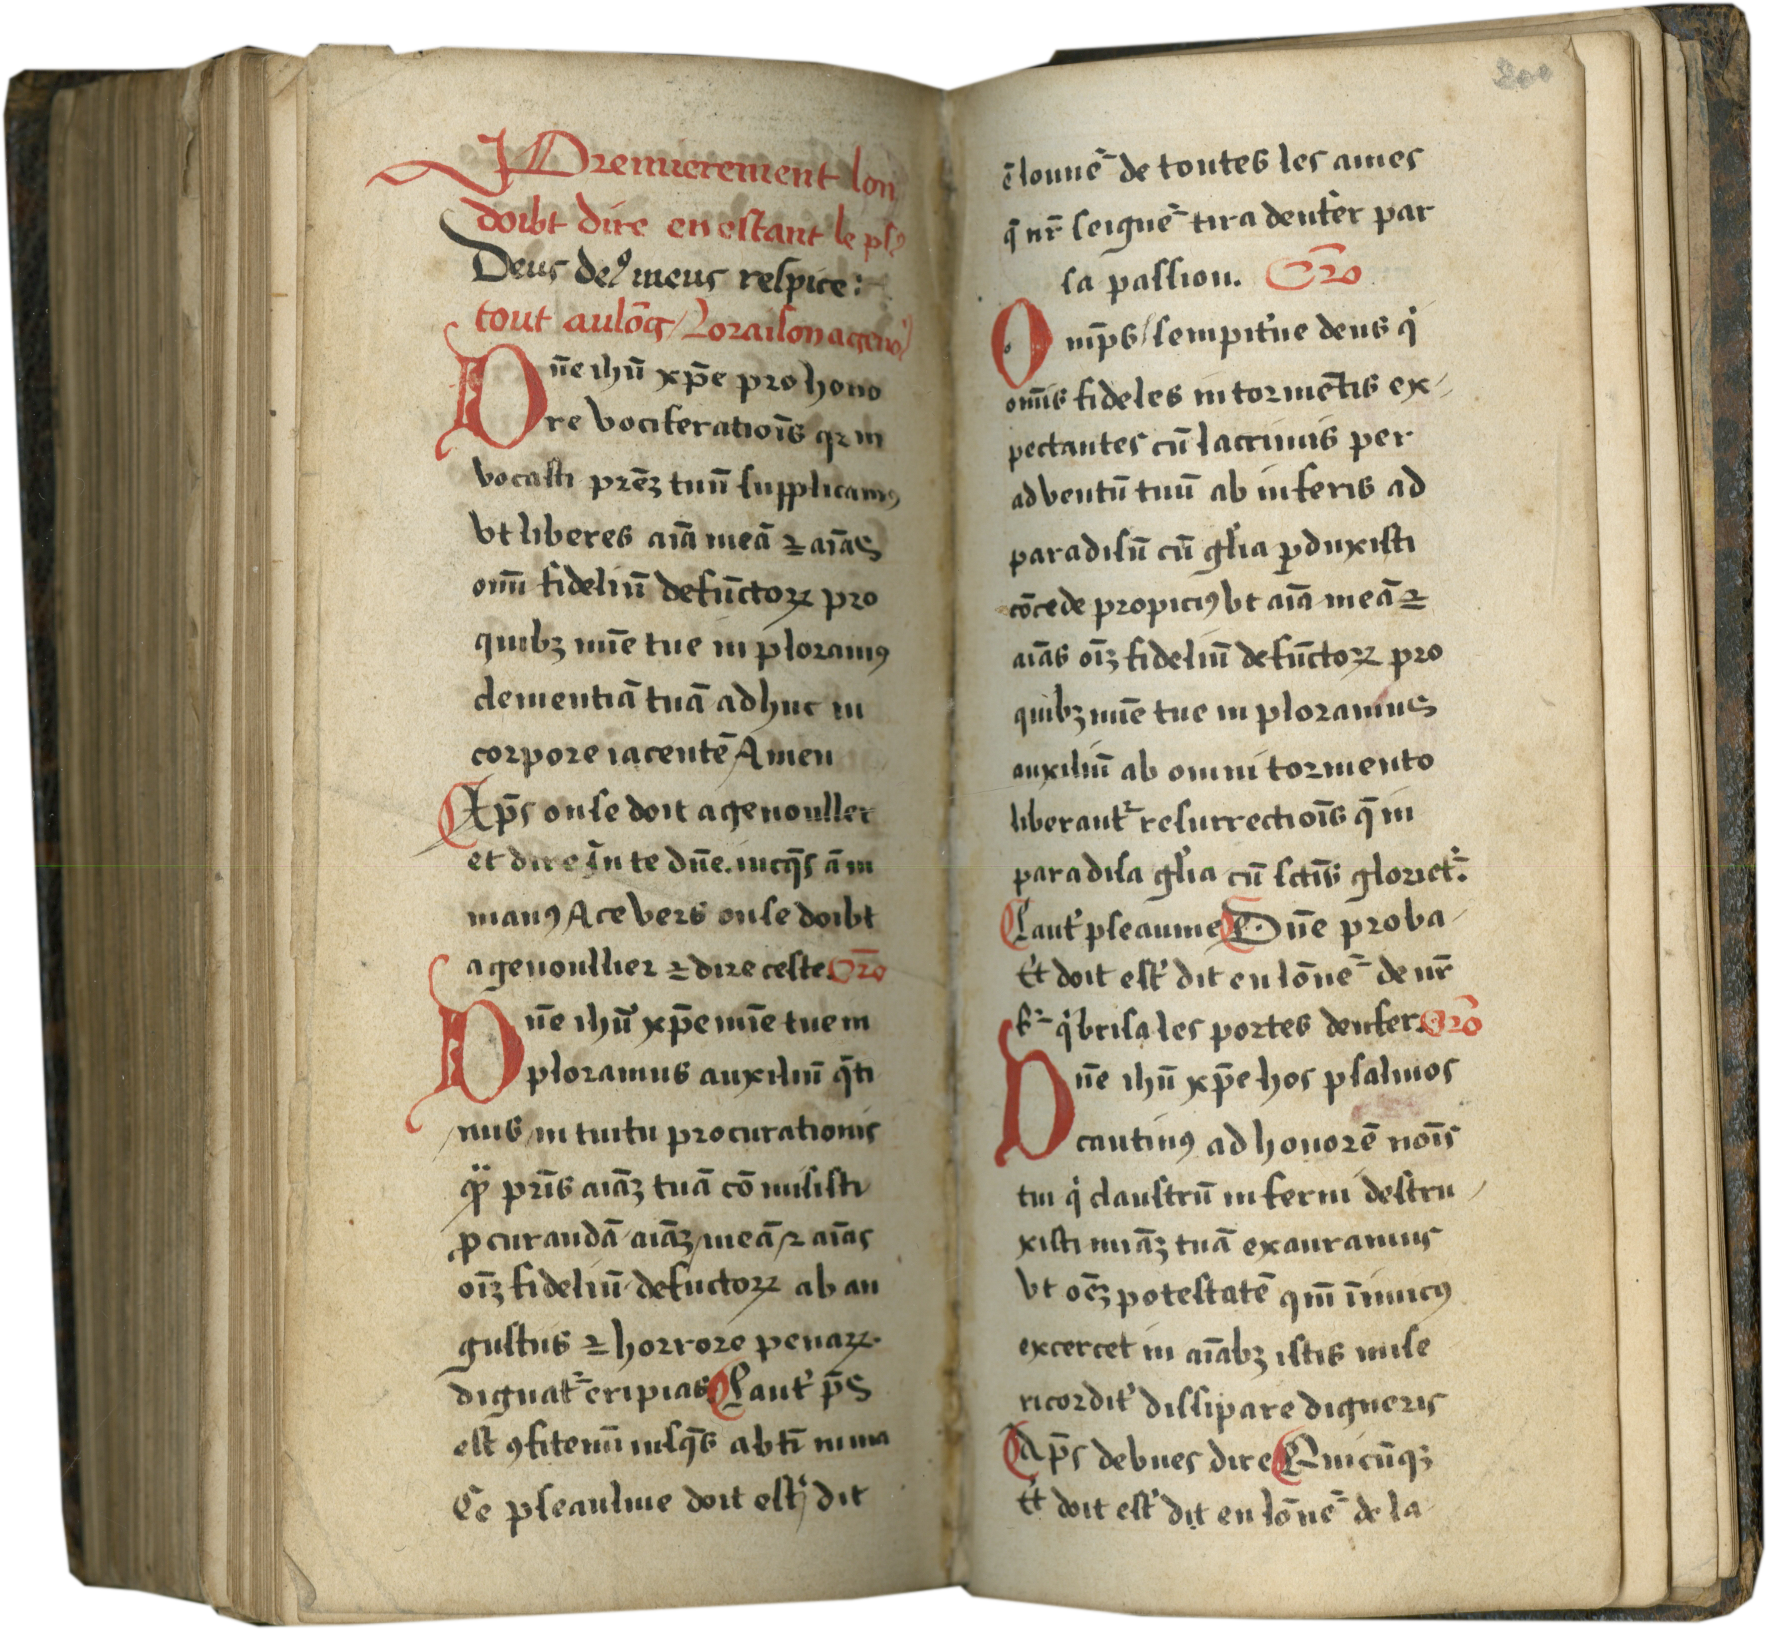 Premierement lon
doibt dire en estant le pσ̄
Deus deꝰ meus respice:
tout aulōg / Loraison a genoˡ
Dn̄e ihū xp̄e pro hono
re vociferatiōis qꝛ in
vocasti prēꝫ tuū supplicamꝰ
vt liberes aīā meā ⁊ aīas
oīm fideliū defūctoꝝ pro
quibꝫ mīe tue in ploramꝰ
clementiā tuā ad huc in
corpore iacentē Amen
Ap̄s on se doit agenouller
et dire In te dn̄e. iusqs̄ a in
manꝰ A ce vers on se doibt
agenoullier ⁊ dire ceste. Oro
Dn̄e ihū xp̄e mīe tue in
ploramus auxiliū q̄ti
nus / in tuitu procurationis
qͥ pr̄is aīāꝫ tuā cōmisisti
ꝓcurandā aīāꝫ / meā / ⁊ aīas
oīꝫ fideliū defuctoꝝ ab an
gustiis ⁊ horrore penaꝝ
dignatͬ eripias. Laut̾ ps̄
est ꝯfitemī iusq̄s ab tī nima
Ce pseaulme doit est̾ dit
ēlonneͬ de toutes les ames
q̄ nr̄ seigneͬ tira denfer par
sa passion. Oro
Omp̄s / sempit̾ne deus qͥ
om̄is fideles in tormētis ex-
pectantes cū lacrimis per
adventū tuū ab inferis ad
paradisū cū gl̾ia ꝑduxisti
cōcede propiciꝰ vt aīā meā ⁊
aīas oīꝫ fideliū defūctoꝝ pro
quibꝫ mīe tue in ploramus
auxiliū ab omni tormento
liberantͬ resurrectiōis q̄ in
paradisa gl̾ia cū sctīs glorietͬ.
Laut̾ pseaume Dn̄e proba-
Et doit est̾ dit en lōneͬ de nr̄
sͬ qͥ brisa les portes denfer. Oro
Dn̄e ihū xp̄e hos psalmos
cantimꝰ ad honorē noīs
tui qͥ claustrū inferni destru-
xisti miāꝫ tuā exauramus
vt oēꝫ potestatē qm̄ īimicꝰ
excercet in aīabꝫ istis mise
ricordit̾ dissipare digneris
Ap̄s debues dire Quicūqꝫ
Et doit est̾ dit en lōneͬ de la